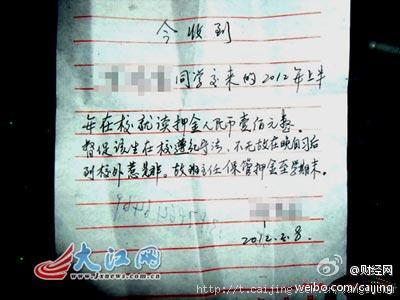 今收到
同学交来的2012年上半
年在校就读押金人民币壹佰元整。
督促该生在校遵纪守法，不无故在晚自习后
到校外惹是非。故班主任保管押金至学期末。
2012.2.8.
大江网
Jxnews.com.cn
@财经网
weibo.com/caijing